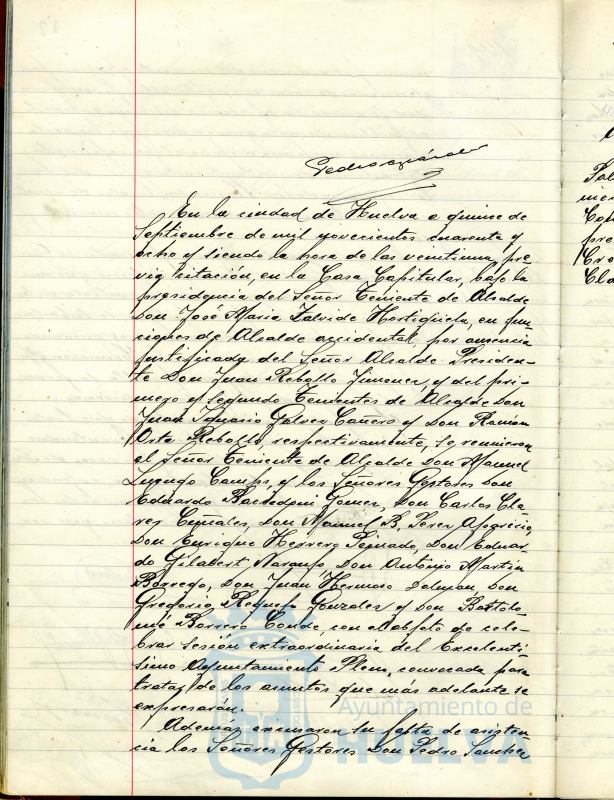 En la ciudad de Huelva a quince de
Septiembre de mil novecientos cuarenta y
ocho y siendo la hora de las veintiuna, pre-
via citación, en la Casa Capitular, bajo la
presidencia del Señor Teniente de Alcalde
Don José María Zalvide Hortigüela, en fun-
ciones de Alcalde accidental, por ausencia
justificada del Señor Alcalde Presiden-
te Don Juan Rebollo Jimenez, y del pri-
mero y segundo Tenientes de Alcalde Don
Juan Ignacio Galvez Cañero y Don Ramon
Orta Rebollo respectivamente, se reunieron
el Señor Teniente de Alcalde Don Manuel
Luengo Camps, y los Señores Gestores Don
Eduardo Gomez, Don Carlos Cla-
res Don Manuel B. Perez Aparicio,
Don Enrique Herrero Peinado, Don Eduar-
do Gilabert Naranjo, Don Antonio Martin
Borrego, Don Juan Hermoso Don
Gregorio Gonzalez y Don Bartolo-
mé Borrero Conde, con el objeto de cele-
brar sesión extraordinaria del Excelentí-
simo Ayuntamiento Pleno, convocada para
tratar de los asuntos que más adelante se
expresarán.
Además excusaron su falta de asisten-
cia los Señores Gestores Don Pedro Sanchez
Ayuntamiento de
HUELVA